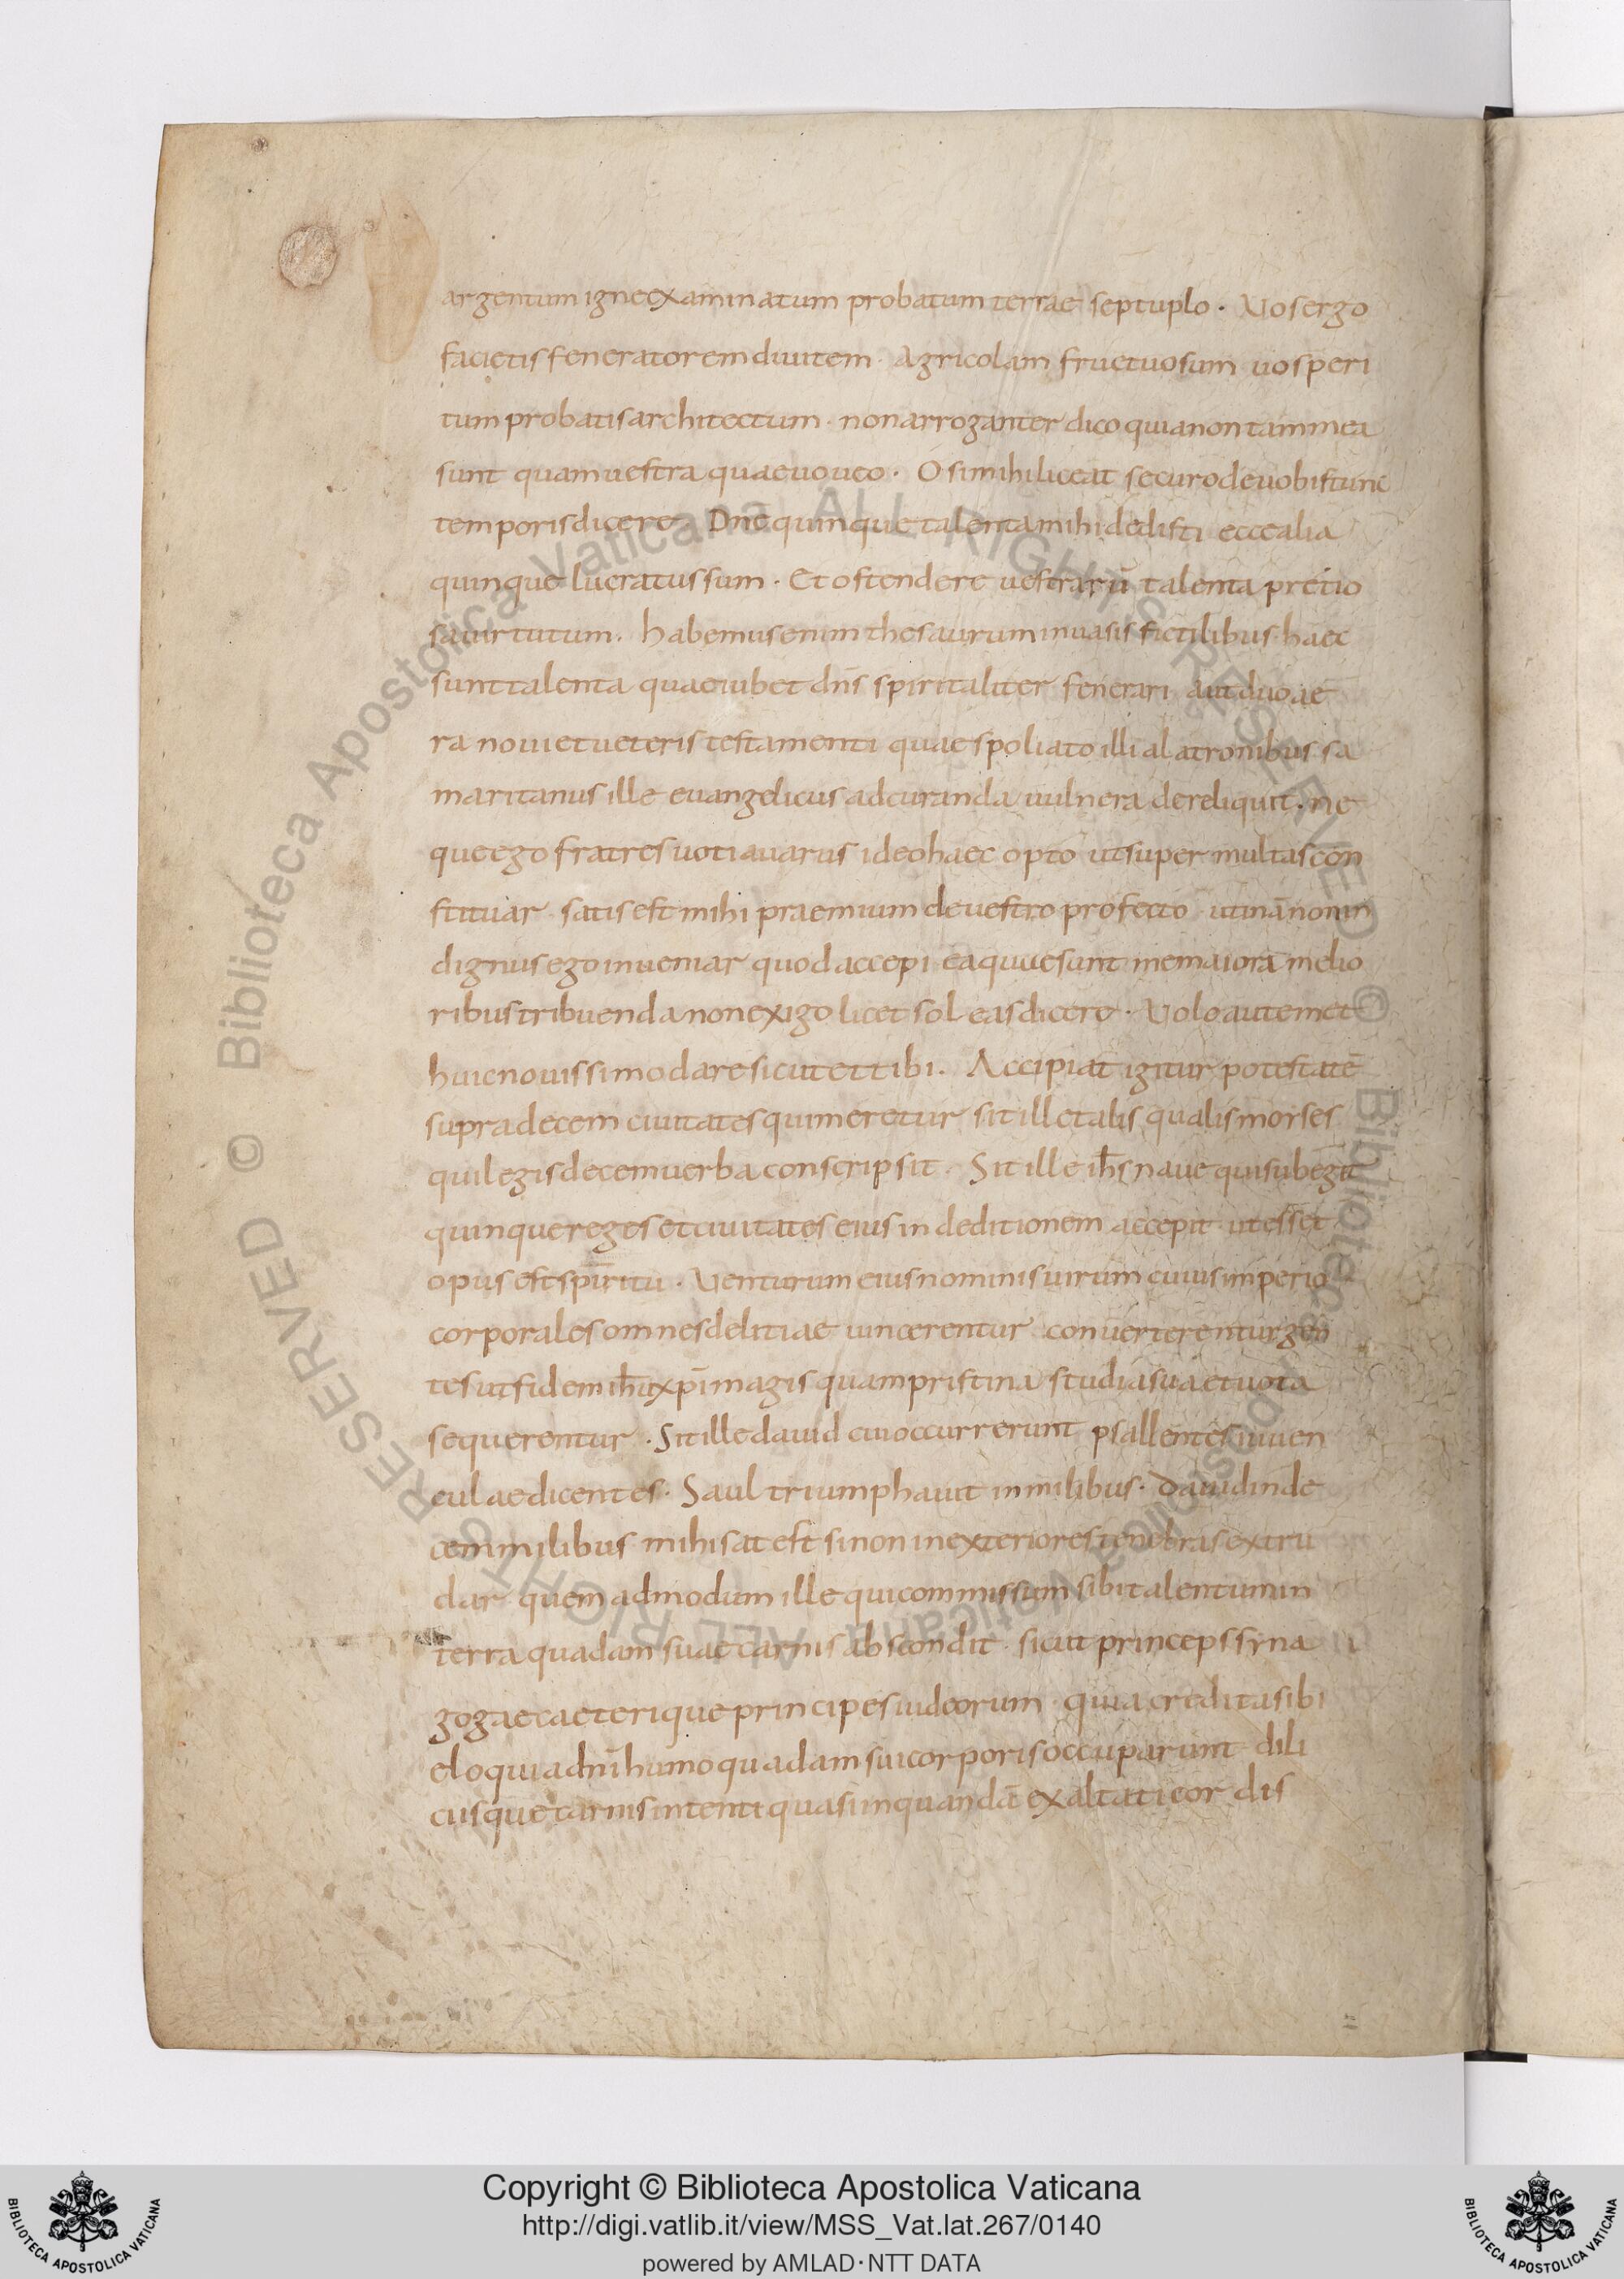 argentum igne examinatum probatum terrae septuplo · Vos ergo
facietis feneratorem divitem · Agricolam fructuosum vos peri
tum probatis architectum · non arroganter dico quia non tam mea
sunt quam vestra quae voveo · O si mihi liceat securo de vobis tunc
temporis dicere · Dne quinque talenta mihi dedisti ecce alia
quinque lucratus sum · Et ostendere vestrarū talenta pretio
sa virtutum · habemus enim thesaurum in vasis fictilibus · haec
sunt talenta quae iubet dn̄s spiritaliter fenerari aut duo ae
ra novi et veteris testamenti quae spoliato illi a latronibus sa
maritanus ille evangelicus ad curanda vulnera dereliquit · ne
que ego fratres voti avarus ideo haec opto ut super multas con
stituar · satis est mihi praemium de vestro profecto · utinā non in
dignus ego inveniar quod accepi ea quae sunt me maiora melio
ribus tribuenda non exigo licet soleas dicere · Volo autem et
huic novissimo dare sicut et tibi · Accipiat igitur potestatē
supra decem civitates qui meretur sit ille talis qualis morses
qui legis decem verba conscripsit · Sit ille ih̄s nave qui subegit
quinque reges et civitates eius in deditionem accepit ut esset
opus est spiritu · Venturum eius nominis virum cuius imperio
corporales omnes delitiae vincerentur converterentur gen
tes ut fidem ih̄u xp̄i magis quam pristina studia sua et vota
sequerentur · Sit ille david cui occurrerunt psallentes iuven
culae dicentes · Saul triumphavit in milibus · David in de
cem milibus mihi sat est si non in exteriores tenebras extru
dar quem admodum ille qui commissum sibi talentum in
terra quadam suae carnis abscondit · sicut princeps syna
gogae caeterique principes iudeorum · quia credita sibi
eloquia dn̄i humo quadam sui corporis occuparunt dili
cusque carnis intenti quasi in quandā exaltati cordis
Copyright © Biblioteca Apostolica Vaticana
http://digi.vatlib.it/view/MSS_Vat.lat.267/0140
powered by AMLAD · NTT DATA
BIBLIOTECA APOSTOLICA VATICANA
BIBLIOTECA APOSTOLICA VATICANA
© Biblioteca Apostolica Vaticana ALL RIGHTS RESERVED © Biblioteca Apostolica Vaticana ALL RIGHTS RESERVED